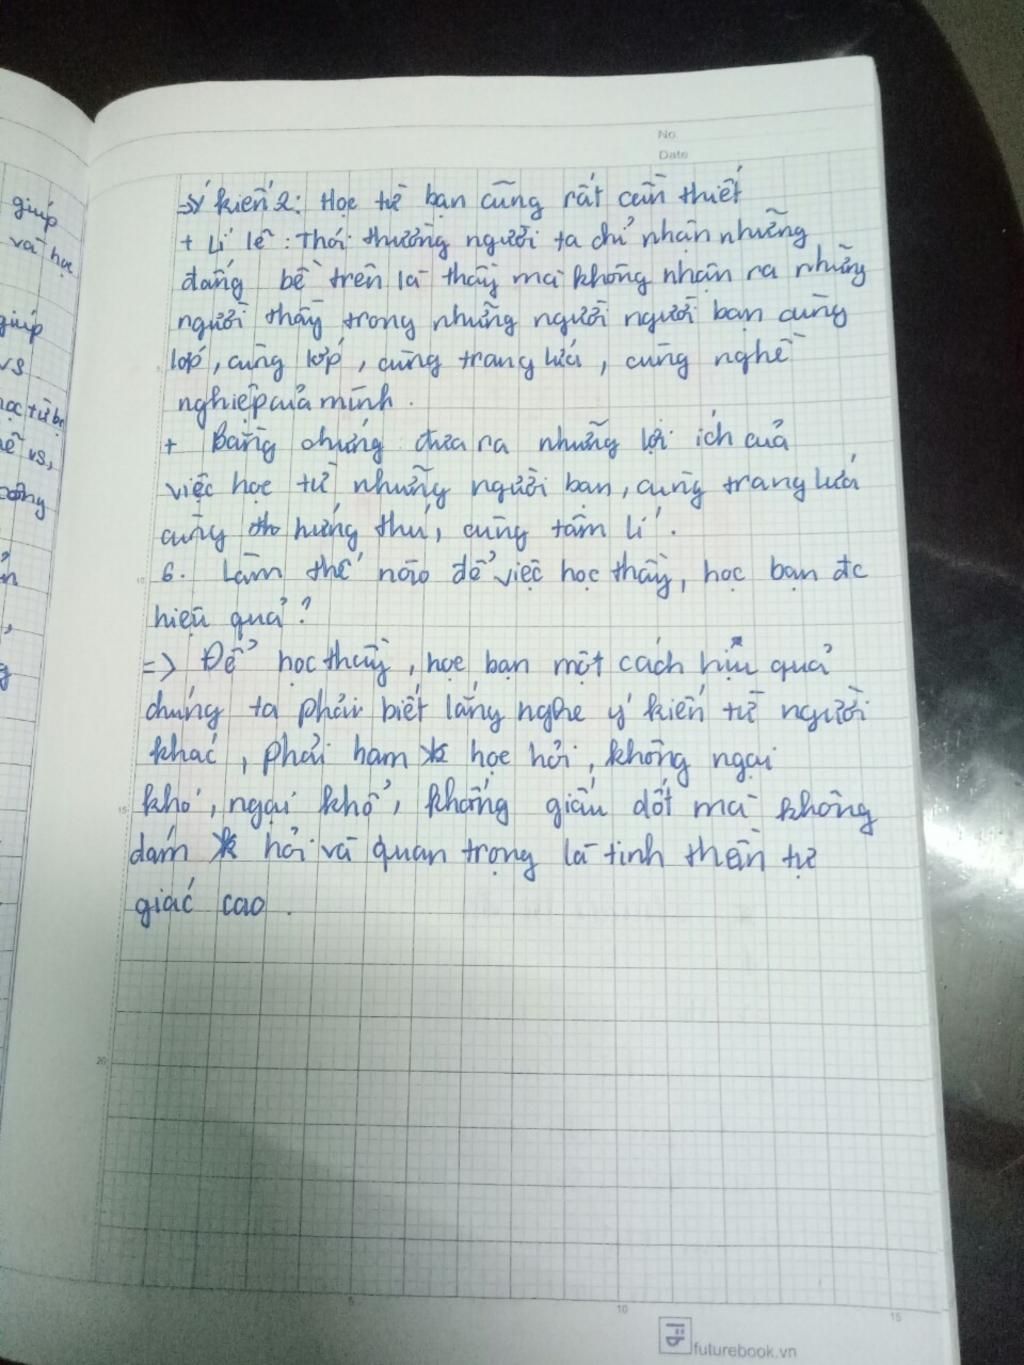 giúp
và học
giúp
vs
học từ bạ
vs,
No.
Date
=> ý kiến 2: Học từ bạn cũng rất cần thiết
+ Lí lẽ: Thói thường người ta chỉ nhận những
đấng bề trên là thầy mà không nhận ra những
người thầy trong những người người bạn cùng
lớp, cùng lớp, cùng trang lứa, cùng nghề
nghiệp của mình.
+ Bằng chứng đưa ra những lợi ích của
việc học từ những người bạn, cùng trang lứa
cùng hứng thú, cùng tâm lí.
6. Làm thế nào để việc học thầy, học bạn đc
hiệu quả?
=> Để học thầy, học bạn một cách hiệu quả
chúng ta phải biết lắng nghe ý kiến từ người
khác, phải ham học hỏi, không ngại
khó, ngại khổ, không giấu dốt mà không
dám hỏi và quan trọng là tinh thần tự
giác cao.
5
10
15
20
5
10
15
futurebook.vn